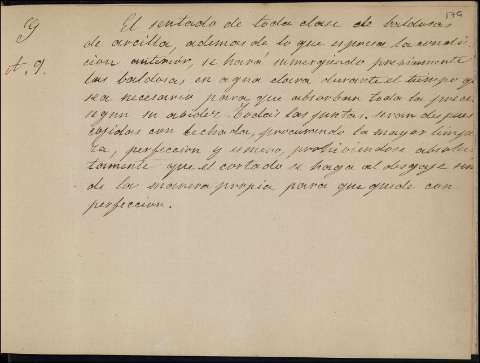 176
9
A. 9.
El sentado de toda clase de baldosas
de arcilla, ademas de lo que espresa la condi-
cion anterior, se hará sumergiendo previamente
las baldosas en agua clara durante el tiempo que
sea necesario para que absorban toda la
segun su abidez. Todas las juntas, seran despues
cojidas con lechada, procurando la mayor limpie-
za, perfeccion y esmero, prohiviendose absolu-
tamente que el cortado se haga al desgaje sin
de la manera propia para que quede con
perfeccion.